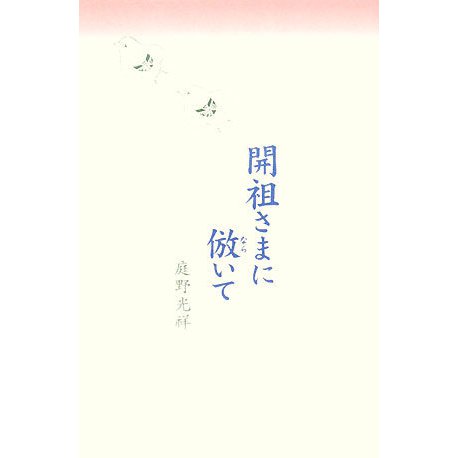 開祖さまに
倣いて
なら
庭野光祥